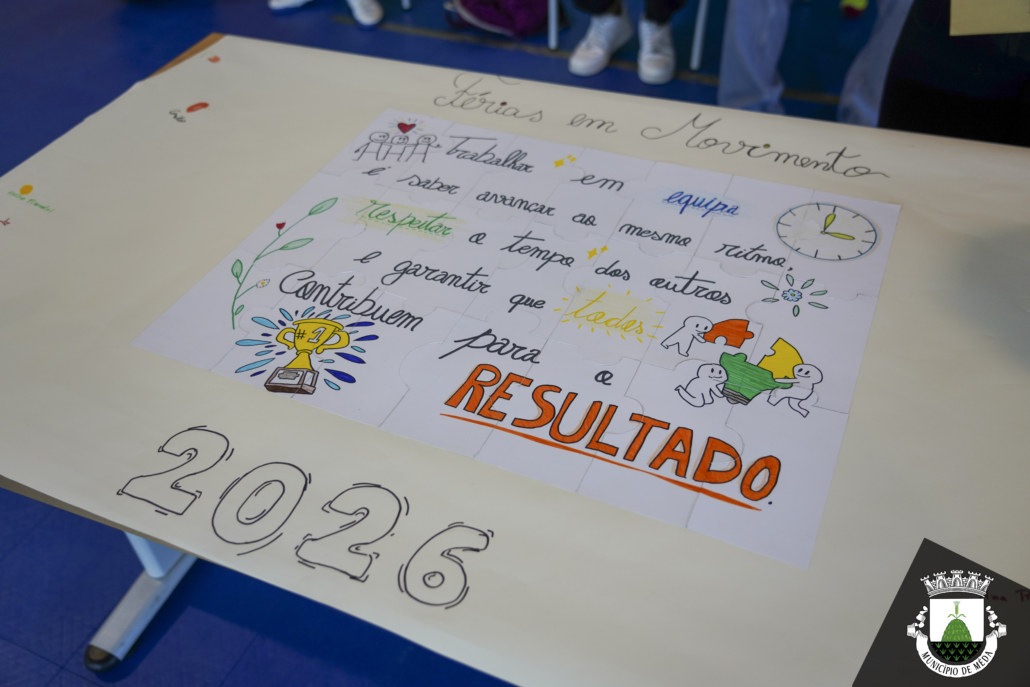 Férias em Movimento
Trabalhar em equipa
é saber avançar ao mesmo ritmo,
respeitar o tempo dos outros
e garantir que todos
Contribuem para o
RESULTADO.
#1
2026
MUNICÍPIO DE MÊDA